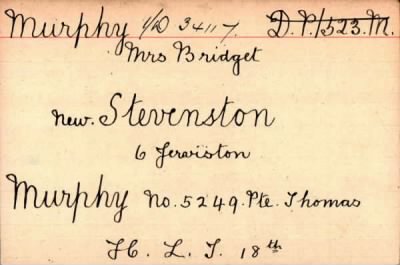 Murphy 1/D 34117. D.P./523.M.
Mrs Bridget
new. Stevenston
6 Jerviston
Murphy No. 5249. Pte. Thomas
H. L. I. 18th